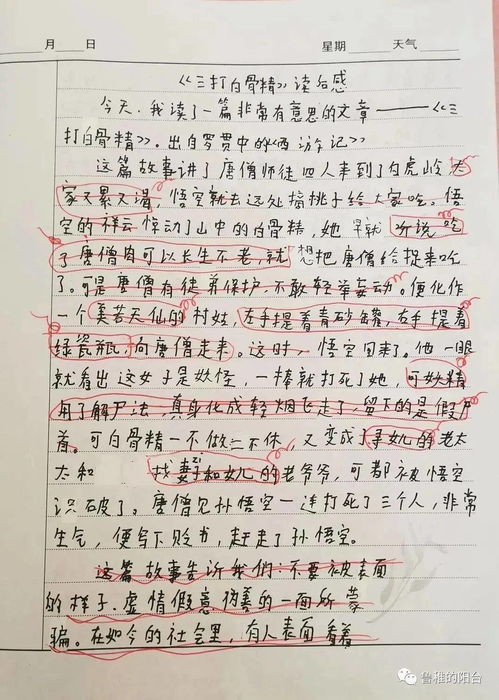 月 日 星期 天气
《三打白骨精》读后感
今天,我读了一篇非常有意思的文章——《三
打白骨精》。出自罗贯中的《西游记》
这篇故事讲了唐僧师徒四人来到了白虎岭,大
家又累又渴,悟空就去远处摘桃子给大家吃。悟
空的祥云惊动了山中的白骨精,她早就听说吃
了唐僧肉可以长生不老,就想把唐僧给捉来吃
了。可是唐僧有徒弟保护,不敢轻举妄动。便化作
一个美若天仙的村姑,左手提着青砂罐,右手提着
绿瓷瓶,向唐僧走来。这时,悟空回来了。他一眼
就看出这女子是妖怪,一棒就打死了她,可妖精
用了解尸法,真身化成轻烟飞走了,留下的是假尸
首。可白骨精一不做二不休,又变成了寻女儿的老太
太和 找妻子和女儿的老爷爷,可都被悟空
识破了。唐僧见孙悟空一连打死了三个人,非常
生气,便写下贬书,赶走了孙悟空。
这篇故事告诉我们:不要被表面
的样子、虚情假意伪善的一面所蒙
骗。在如今的社会里,有人表面看着
鲁雅的阳台